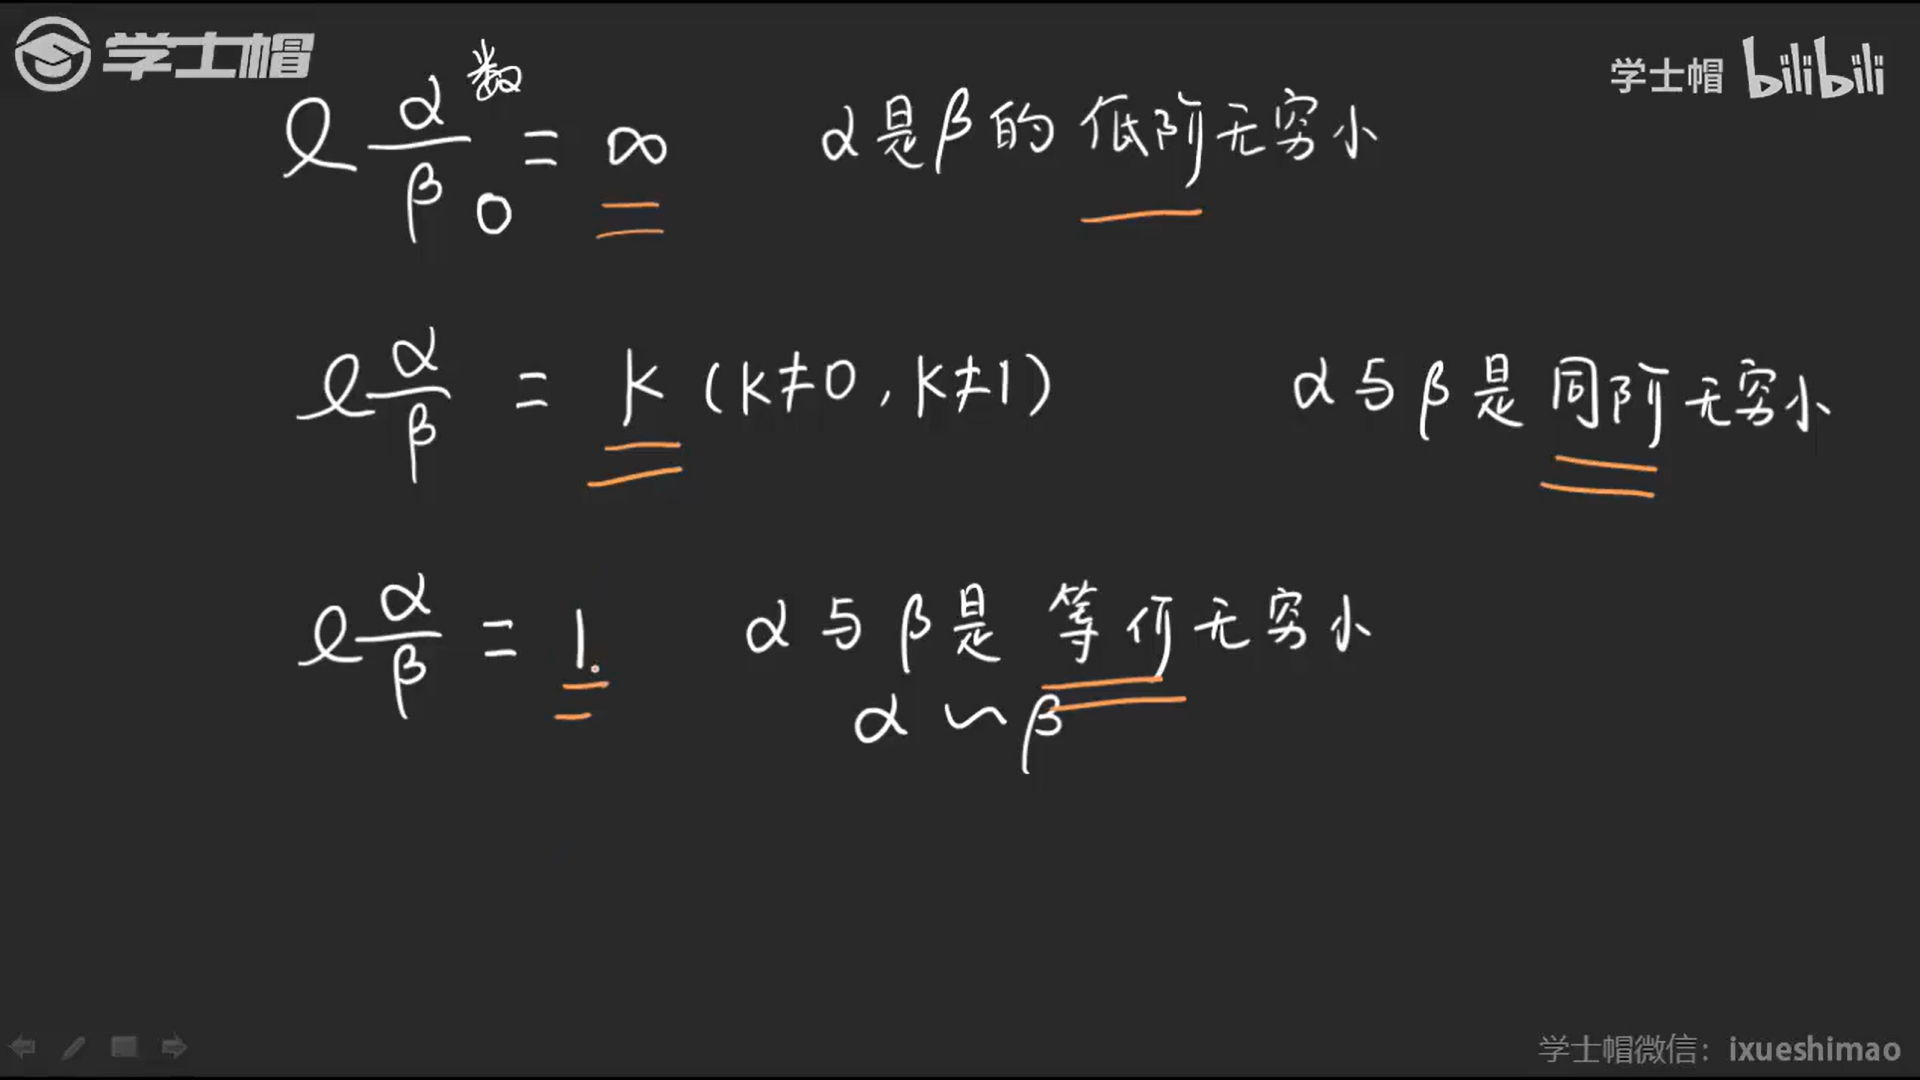 学士帽
学士帽 bilibili
l α/β 数 0 = ∞ α是β的低阶无穷小
l α/β = k (k≠0, k≠1) α与β是同阶无穷小
l α/β = 1. α与β是等价无穷小
α ~ β
学士帽微信：ixueshimao